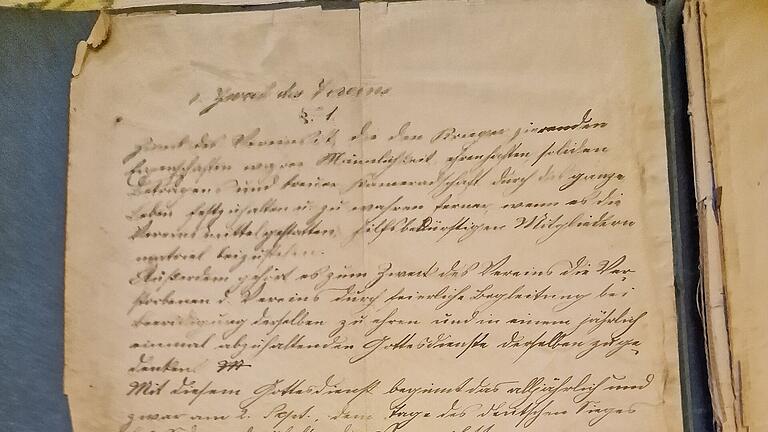 1. Zweck des Vereins
§. 1.
Zweck des Vereins ist, die den Krieger zierenden
Eigenschaften wahrer Männlichkeit, ehrenhaften soliden
Betragens und treuer Kameradschaft durch das ganze
Leben festzuhalten u. zu wahren ferner, wenn es die
Vereinsmittel gestatten, hilfsbedürftigen Mitgliedern
materiel beizustehen.
Außerdem gehört es zum Zweck des Vereins die Ver-
storbenen d. Vereins durch feierliche Begleitung bei
Beerdigung derselben zu ehren und in einem jährlich
einmal abzuhaltenden Gottesdienste derselben zu ge-
denken.
Mit diesem Gottesdienst beginnt das alljährlich und
zwar am 2. Sept., dem Tage des deutschen Sieges